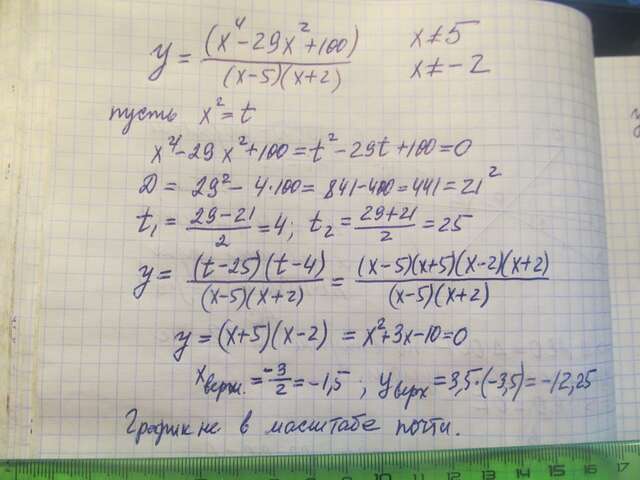 y = (x⁴ - 29x² + 100) / (x-5)(x+2)   x ≠ 5
x ≠ -2
пусть x² = t
x⁴ - 29x² + 100 = t² - 29t + 100 = 0
Д = 29² - 4·100 = 841 - 400 = 441 = 21²
t₁ = (29-21)/2 = 4; t₂ = (29+21)/2 = 25
y = (t-25)(t-4) / (x-5)(x+2) = (x-5)(x+5)(x-2)(x+2) / (x-5)(x+2)
y = (x+5)(x-2) = x² + 3x - 10 = 0
x верш. = -3/2 = -1,5; y верх = 3,5·(-3,5) = -12,25
График не в масштабе почти.
9 10 11 12 13 14 15 16 17